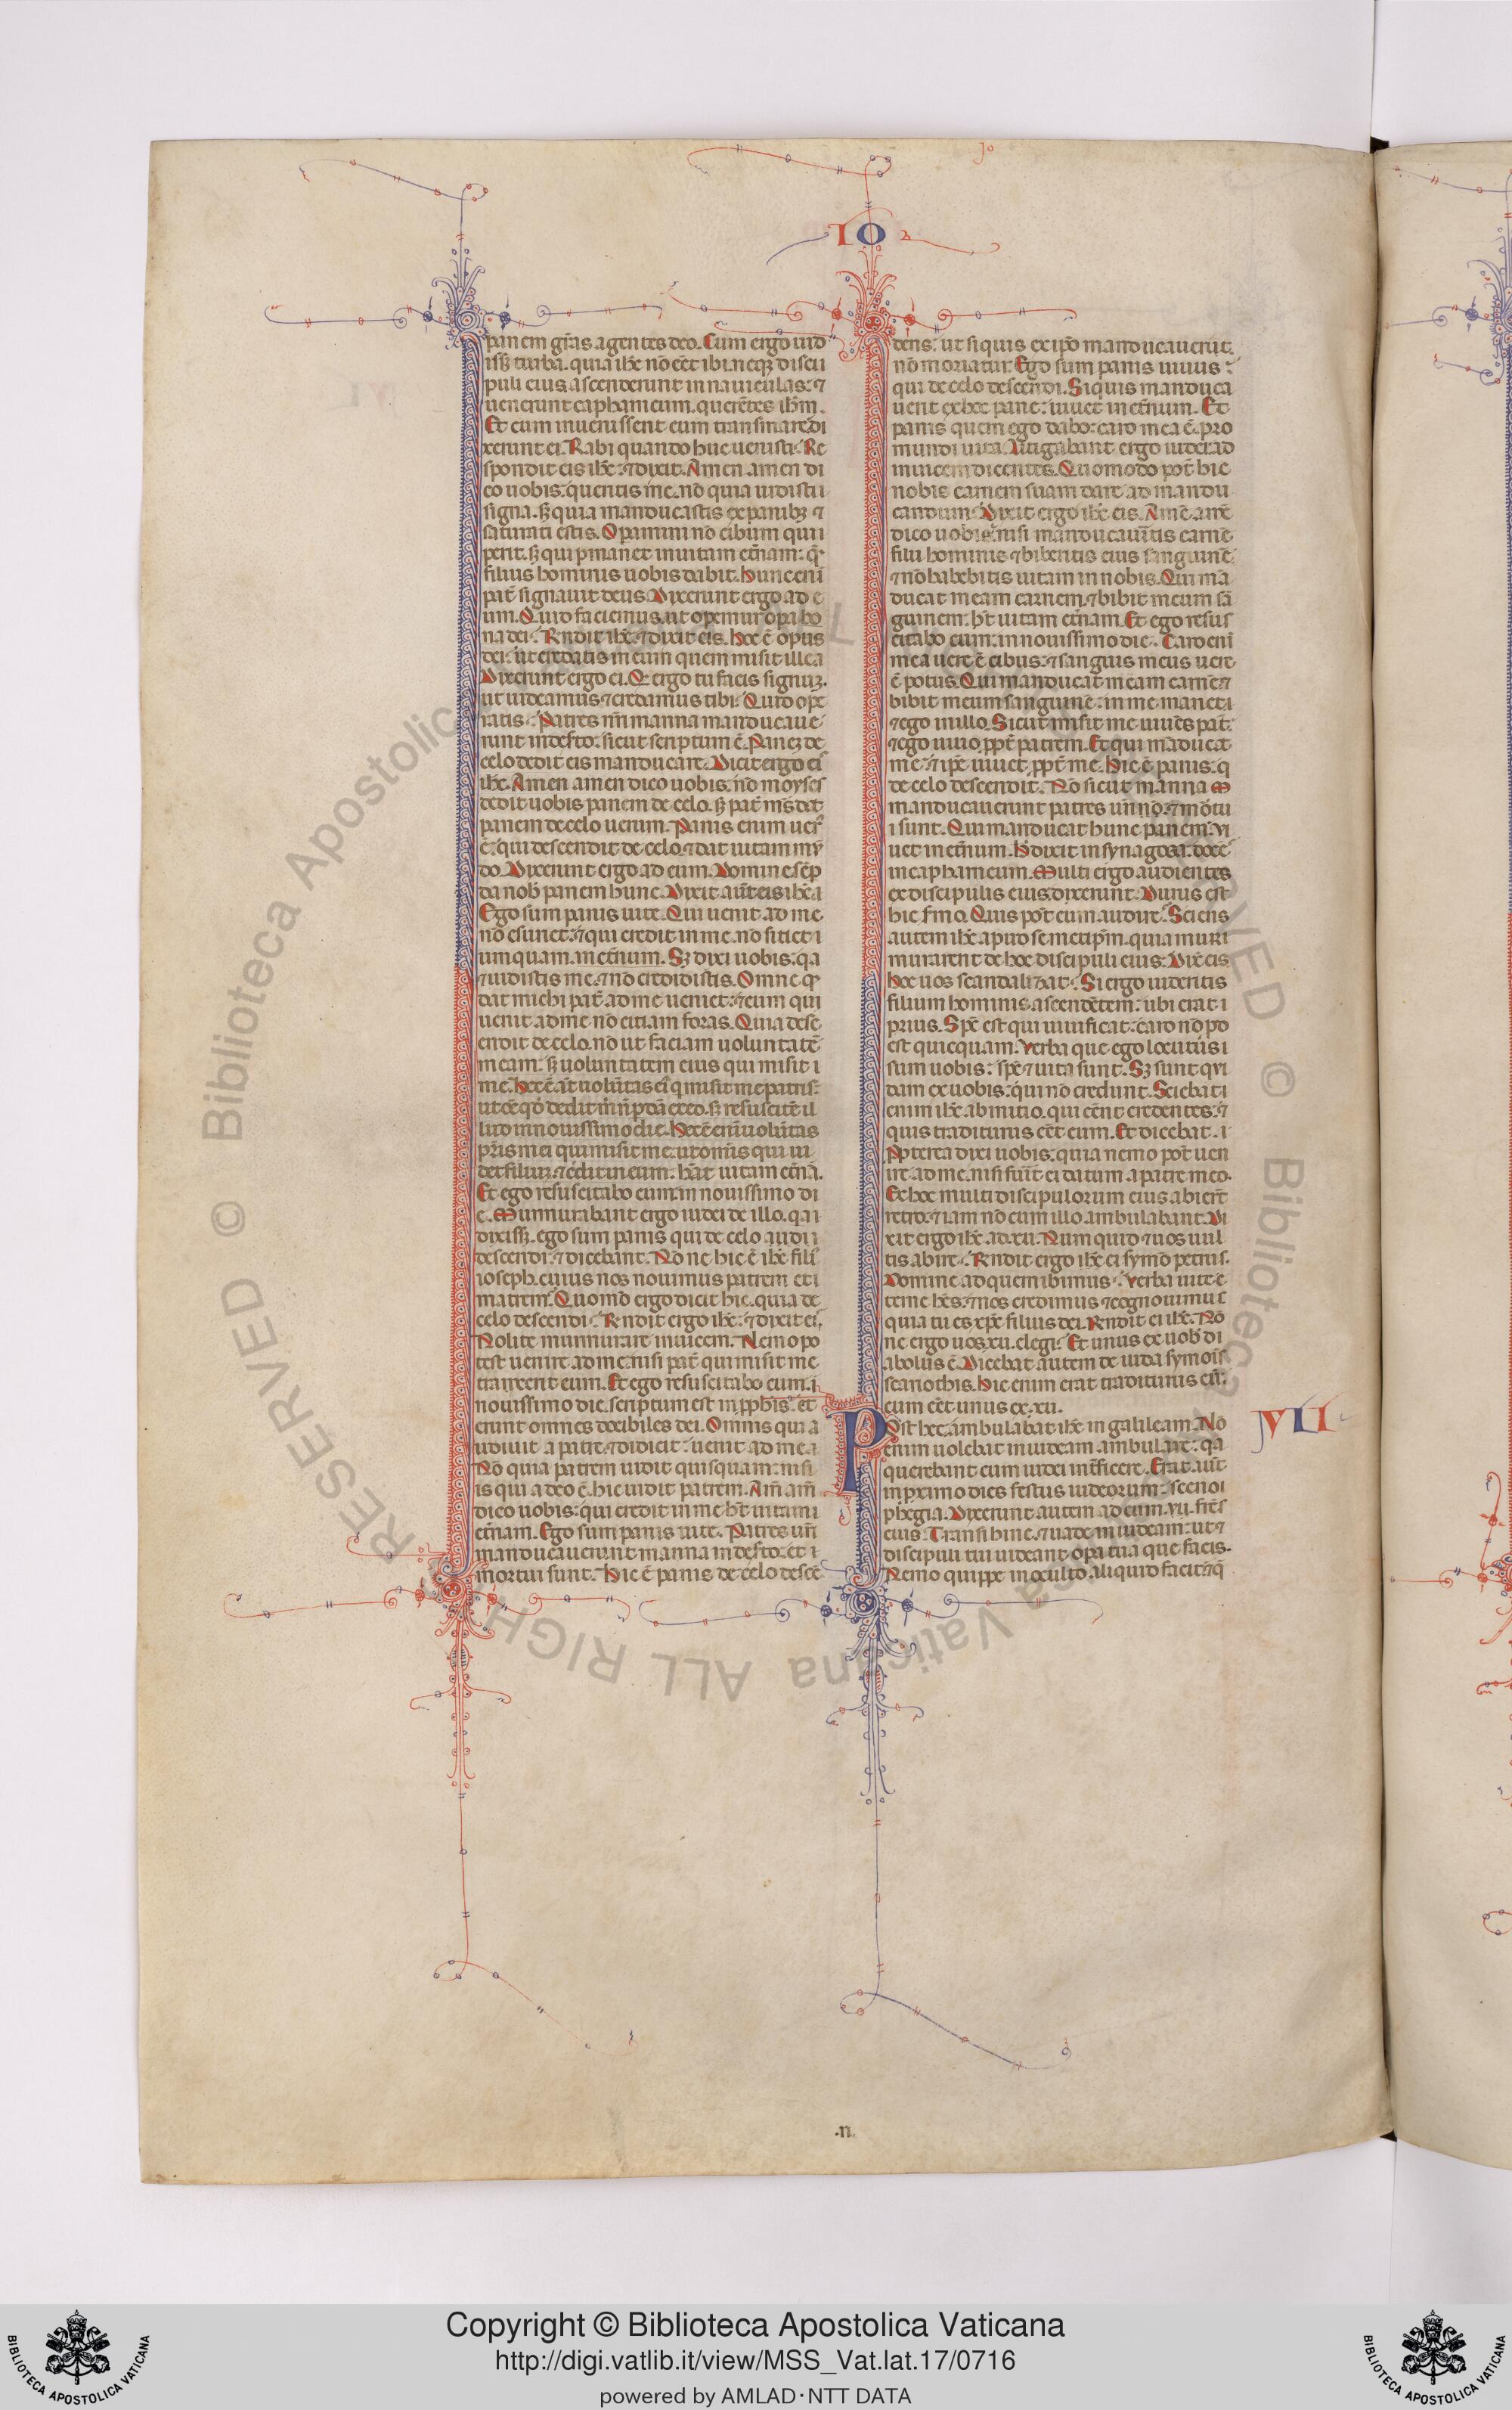 Jo
IO
panem gr̃as agentes deo. Cum ergo uid
isſʒ turba. quia ihc̄ nō eēt ibi. neqʒ discii
puli eius. ascenderunt in nauiculas: ⁊
uenerunt capharnaum. querētes ihm̄.
Et cum inuenissent eum transmare. di
xerunt ei. Rabi quando huc uenisti. Re
spondit eis ihc̄: ⁊ dixit. Amen amen di
co uobis: queritis me. nō quia uidistii
signa. sʒ quia manducastis ex panibʒ ⁊
saturati estis. Operamini nō cibum qui i
perit. sʒ qui p̱manet in uitam et̄nam: q̄
filius hominis uobis dabit. Hunc enī
pat̄ signauit deus. Dixerunt ergo ad e
um. Quid faciemus. ut operemur opa bo
na dei. Rñdit ihc̄. ⁊ dixit eis. Hoc ē opus
dei: ut credatis in eum quem misit illea
Dixerunt ergo ei. Q̄ ergo tu facis signuʒ.
ut uideamus ⁊ credamus tibi. Quid ope
raris. Patres nr̄i manna manducaue
runt in deſto: sicut scriptum ē. Paneʒ de
celo dedit eis manducare. Dicit ergo eis
ihc̄. Amen amen dico uobis: nō moyses
dedit uobis panem de celo. sʒ pat̄ m̄s dat
panem de celo uerum. Panis enim uerˀ
ē: qui descendit de celo. ⁊ dat uitam mū
do. Dixerunt ergo ad eum. Domine sēp
da nob̄ panem hunc. Dixit aūt eis ihc̄ i
Ego sum panis uite. Qui uenit ad me
nō esuriet: ⁊ qui credit in me. nō sitiet i
umquam. in et̄num. Sʒ dixi uobis: qa
⁊ uidistis me. ⁊ nō credidistis. Omne qḋ
dat michi pat̄ ad me ueniet: ⁊ eum qui
uenit ad me nō eitiam foras. Quia desc
endit de celo. nō ut faciam uoluntatē
meam: sʒ uoluntatem eius qui misit i
me. Hec ē at̄ uolūtas eiˀ q̇ misit me patris:
ut oē qḋ dedit m̄ n̄ pdā ex eo. sʒ resuscitē il
lud in nouissimo die. Hec ē enī uolūtas
pr̄is mei qui misit me: ut omīs qui ui
det filiuʒ. ⁊ c̄dit in eum: hēat uitam et̄nā.
Et ego resuscitabo eum in nouissimo di
e. Murmurabant ergo iudei de illo. qa i
dixisſʒ. ego sum panis qui de celo audii
descendi. ⁊ dicebant. Nōne hic ē ihc̄ filiˀ
ioseph. cuius nos nouimus patrem et i
matrem. Quomō ergo dicit hic. quia de
celo descendi. Rñdit ergo ihc̄: ⁊ dixit eis.
Nolite murmurare inuicem. Nemo po
test uenire ad me. nisi pat̄ qui misit me
traxerit eum. Et ego resuscitabo eum. i
nouissimo die. scriptum est in p̱ph̄is. et
erunt omnes docibiles dei. Omnis qui a
udiuit a patre. ⁊ didicit: uenit ad me. i
Nō quia patrem uidit quisquam: nisi
is qui a deo ē. hic uidit patrem. Am̄ am̄
dico uobis: qui credit in me. ht̄ uitam i
et̄nam. Ego sum panis uite. Patres ur̄i
manducauerunt manna in deſto: et i
mortui sunt. Hic ē panis de celo descē
dens: ut siquis ex ip̄o manducauerit.
nō moriatur. Ego sum panis uiuus:
qui de celo descendi. Siquis manduca
uerit ex hoc pane: uiuet in et̄num. Et
panis quem ego dabo: caro mea ē. pro
mundi uita. Litigabant ergo iudei ad
inuicem dicentes. Quomodo pot̄ hic
nobis carnem suam dare ad mandu
candum. Dixit ergo ihc̄ eis. Amē amē
dico uobis. nisi manducauītis carnē
filii hominis. ⁊ biberitis eius sanguinē
⁊ nō habebitis uitam in nobis. Qui mā
ducat meam carnem. ⁊ bibit meum sā
guinem: ht̄ uitam et̄nam. Et ego resus
citabo eum: in nouissimo die. Caro enī
mea uere ē cibus: ⁊ sanguis meus uere
ē potus. Qui manducat meam carnē ⁊
bibit meum sanguinē: in me manet i
⁊ ego in illo. Sicut misit me uiuēs pat̄:
⁊ ego uiuo p̱pt̄ patrem. Et qui māducat
me: ⁊ ip̄e uiuet p̱pt̄ me. Hic ē panis: q̇
de celo descendit. Nō sicut manna m
manducauerunt patres ur̄i nō. ⁊ mōtu
i sunt. Qui manducat hunc panem: ui
uet in et̄num. H̄ dixit in synagoga. docē
in capharnaum. Multi ergo audientes
ex discipulis eius. dixerunt. Durus est
hic ẜmo. Quis pōt eum audire. Sciens
autem ihc̄ apud semetip̄m. quia muri
murarent de hoc discipuli eius: dix̄ eis.
Hoc uos scandalizat. Si ergo uideritis
filium hominis. ascendētem: ubi erat i
prius. Sp̄c est qui uiuificat: caro nō po
est quicquam. Verba que ego locutus i
sum uobis: sp̄c ⁊ uita sunt. Sʒ sunt qui
dam ex uobis: qui nō credunt. Sciebat i
enim ihc̄ ab initio. qui eēnt credentes: ⁊
quis traditurus eēt eum. Et dicebat. i
Ppterea dixi uobis: quia nemo pōt uen
ire ad me. nisi fuīt ei datum a patre meo.
Ex hoc multi discipulorum eius abierūt
retro: ⁊ iam nō cum illo ambulabant. Di
xit ergo ihc̄ ad. xii. Num quid ⁊ uos uul
tis abire. Rñdit ergo ihc̄ ei symō petrus.
Domine ad quem ibimus. Verba uite e
terne hēs: ⁊ nos credimus ⁊ cognouimus
quia tu es xp̄c filius dei. Rñdit ei ihc̄. Nō
ne ergo uos. xii. elegi. Et unus ex uob̄ di
abolus ē. Dicebat autem de iuda symōis
scariothis. Hic enim erat traditurus eū.
cum eēt unus ex. xii.
Post hec ambulabat ihc̄ in galileam. Nō
enim uolebat in iudeam ambulare: qa
querebant eum iudei int̄ficere. Erat aūt
in p̱ximo dies festus iudeorum: scenoi
phegia. Dixerunt autem ad eum. xii. fr̄es
eius. Transi hinc. ⁊ uade in iudeam: ut ⁊
discipuli tui uideant opa tua que facis.
Nemo quippe in oculto. aliquid facit: ⁊ q̄
VII
.n.
© Biblioteca Apostolica Vaticana ALL RIGHTS RESERVED
Copyright © Biblioteca Apostolica Vaticana
http://digi.vatlib.it/view/MSS_Vat.lat.17/0716
powered by AMLAD·NTT DATA
BIBLIOTECA APOSTOLICA VATICANA
BIBLIOTECA APOSTOLICA VATICANA